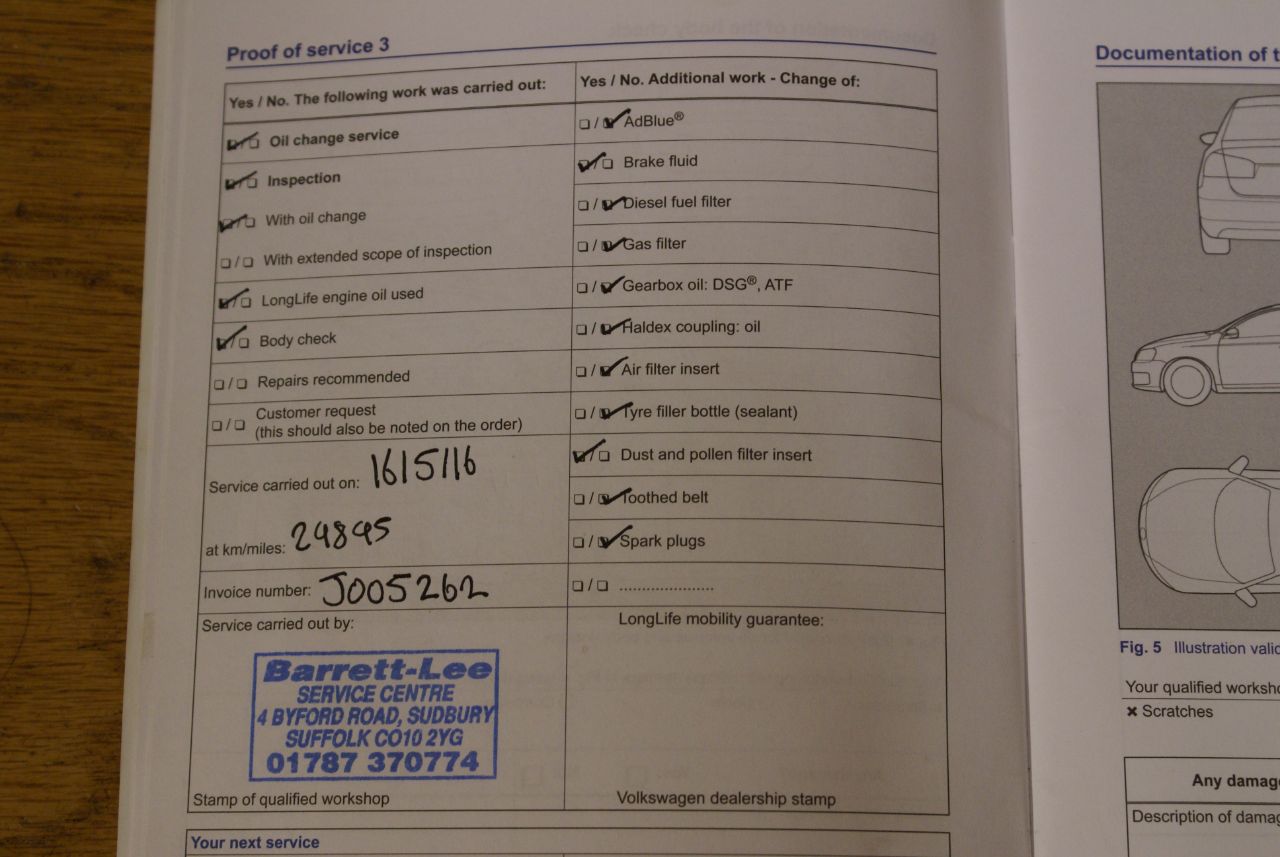 Proof of service 3
Yes / No. The following work was carried out:
Oil change service
Inspection
With oil change
With extended scope of inspection
LongLife engine oil used
Body check
Repairs recommended
Customer request
(this should also be noted on the order)
Service carried out on: 16/5/16
at km/miles: 29895
Invoice number: J005262
Service carried out by:
Barrett-Lee
SERVICE CENTRE
4 BYFORD ROAD, SUDBURY
SUFFOLK CO10 2YG
01787 370774
Stamp of qualified workshop
Yes / No. Additional work - Change of:
AdBlue®
Brake fluid
Diesel fuel filter
Gas filter
Gearbox oil: DSG®, ATF
Haldex coupling: oil
Air filter insert
Tyre filler bottle (sealant)
Dust and pollen filter insert
Toothed belt
Spark plugs
.....................
LongLife mobility guarantee:
Volkswagen dealership stamp
Your next service
Documentation of
Fig. 5 Illustration
Your qualified
× Scratches
Any
Description of